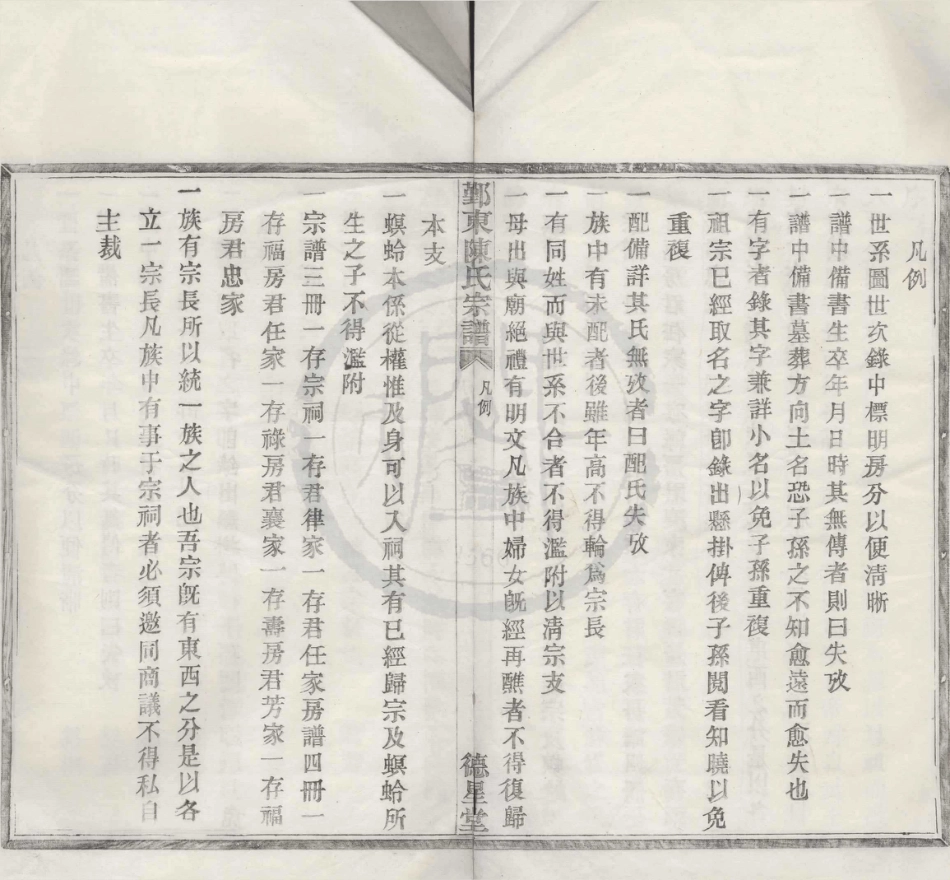 凡例
一世系圖世次錄中標明房分以便清晰
一譜中備書生卒年月日時其無傳者則曰失攷
一譜中備書墓葬方向土名恐子孫之不知愈遠而愈失也
一有字者錄其字兼詳小名以免子孫重複
一祖宗已經取名之字卽錄出懸掛俾後子孫閲看知曉以免
重複
一配備詳其氏無攷者曰配氏失攷
一族中有未配者後雖年高不得輪為宗長
一有同姓而與世系不合者不得濫附以清宗支
一母出與廟絕禮有明文凡族中婦女旣經再醮者不得復歸
鄞東陳氏宗譜 凡例 德星堂
本支
一螟蛉本係從權惟及身可以入祠其有已經歸宗及螟蛉所
生之子不得濫附
一宗譜三冊一存宗祠一存君律家一存君任家房譜四冊一
存福房君任家一存祿房君襄家一存壽房君芳家一存福
房君忠家
一族有宗長所以統一族之人也吾宗旣有東西之分是以各
立一宗長凡族中有事于宗祠者必須邀同商議不得私自
主裁